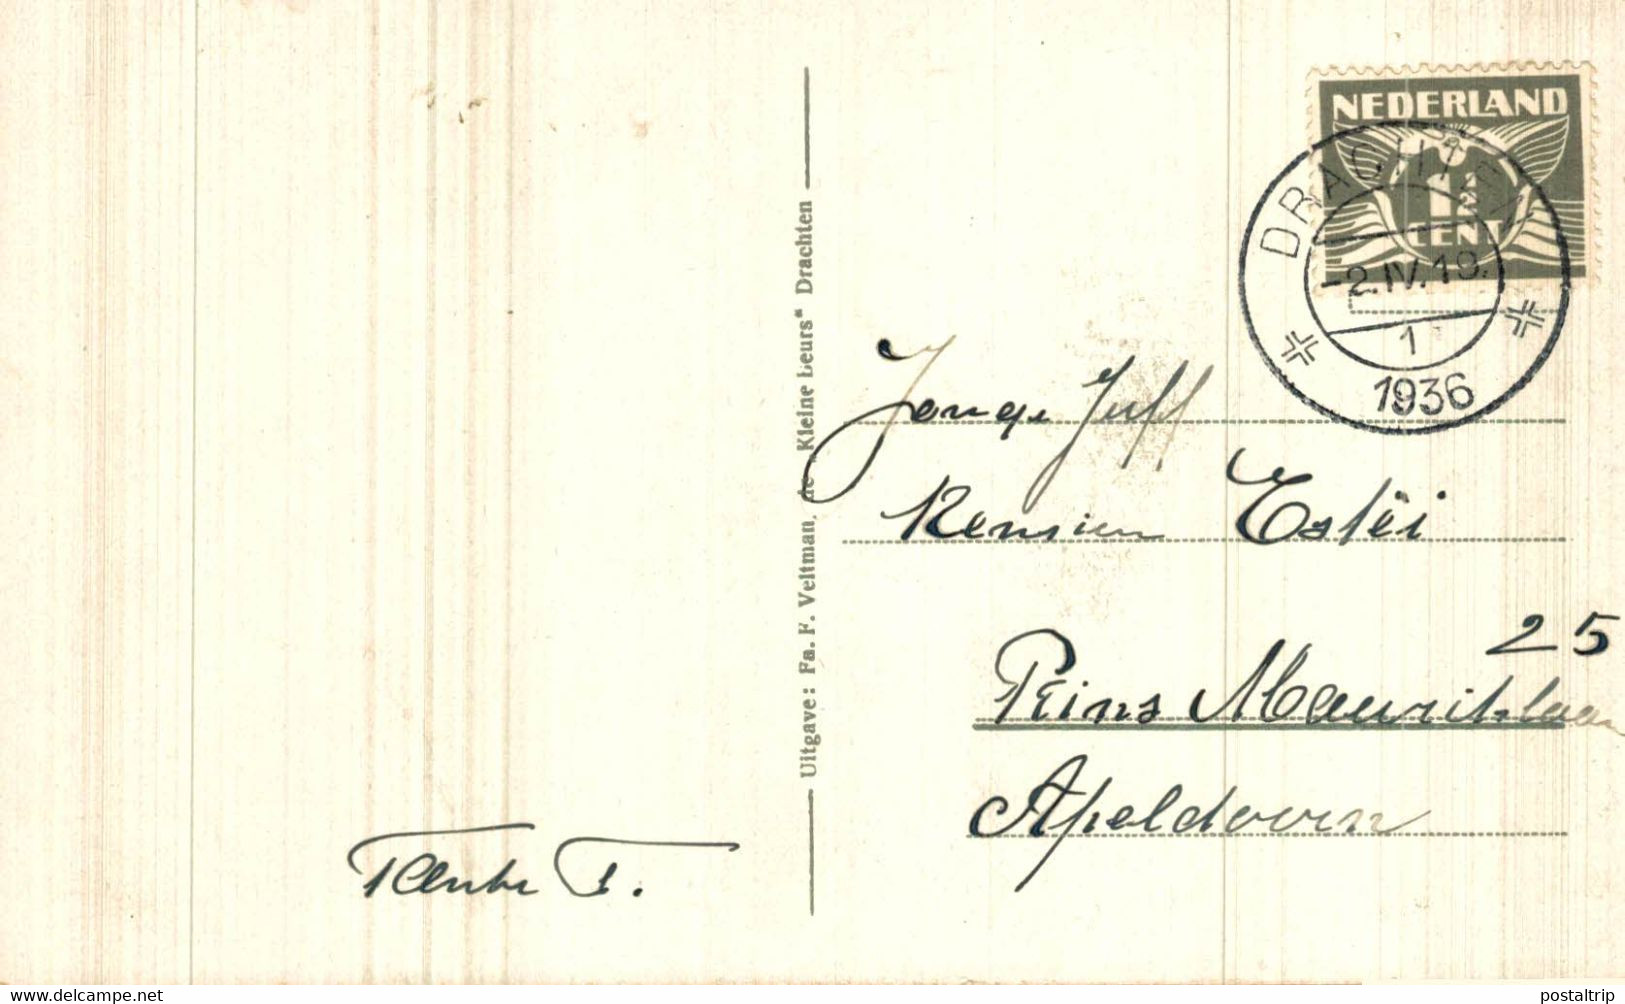 NEDERLAND
1½
CENT
DRACHTEN
-2.IV.19.
1
1936
Uitgave: Fa. F. Veltman, de „Kleine Beurs“ Drachten
Jonge Juff
25
Prins Mauritslaan
Apeldoorn
Tante T.
www.delcampe.net
postaltrip